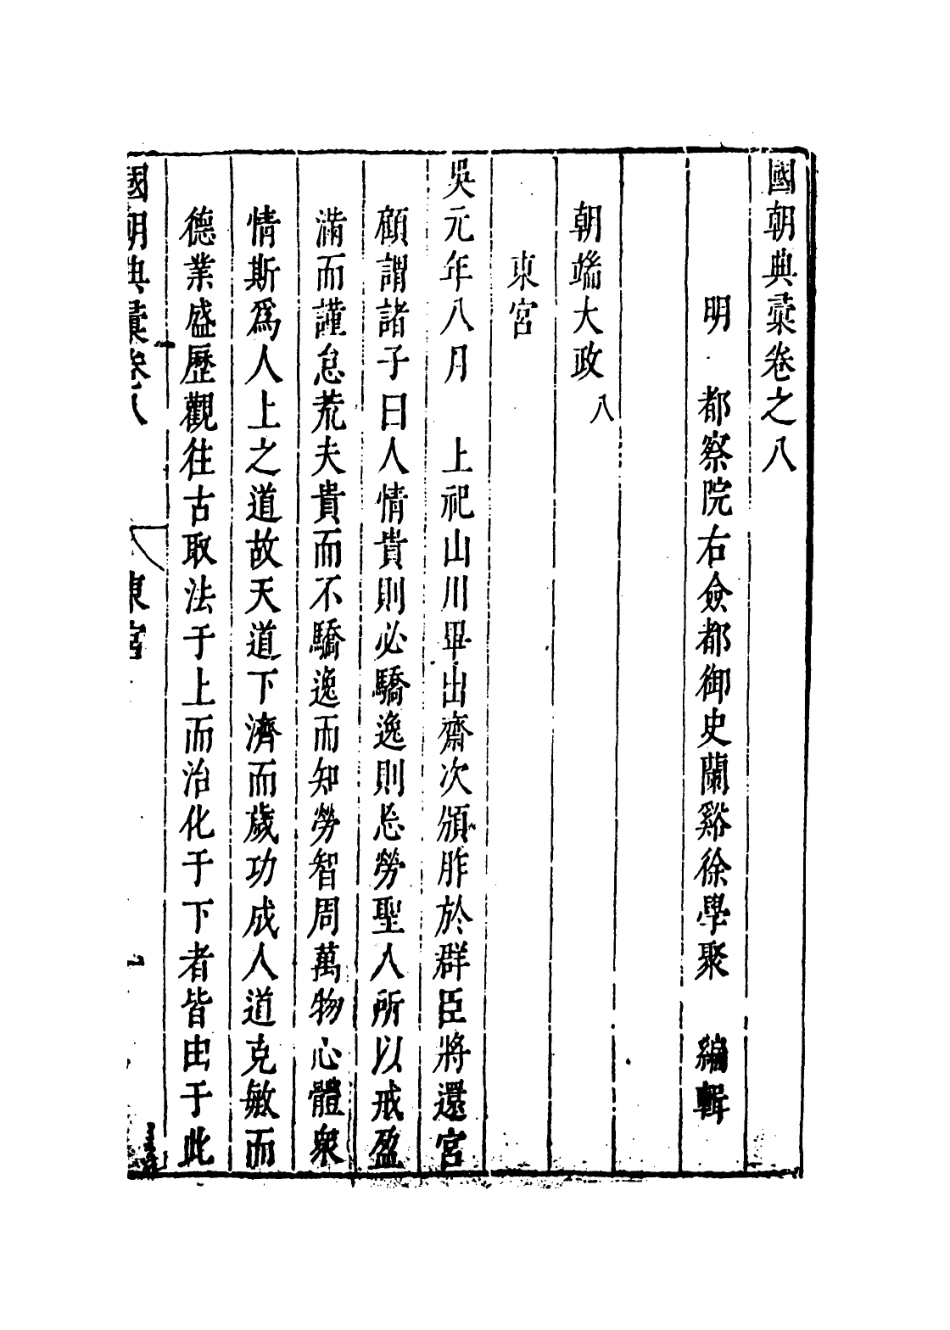 國朝典彚卷之八
明 都察院右僉都御史蘭谿徐學聚 編輯
朝端大政 八
東宮
吳元年八月 上祀山川畢出齋次頒胙於群臣將還宮
顧謂諸子曰人情貴則必驕逸則忘勞聖人所以戒盈
滿而謹怠荒夫貴而不驕逸而知勞智周萬物心體衆
情斯爲人上之道故天道下濟而歲功成人道克敏而
德業盛歷觀往古取法于上而治化于下者皆由于此
國朝典彚卷八 東宮